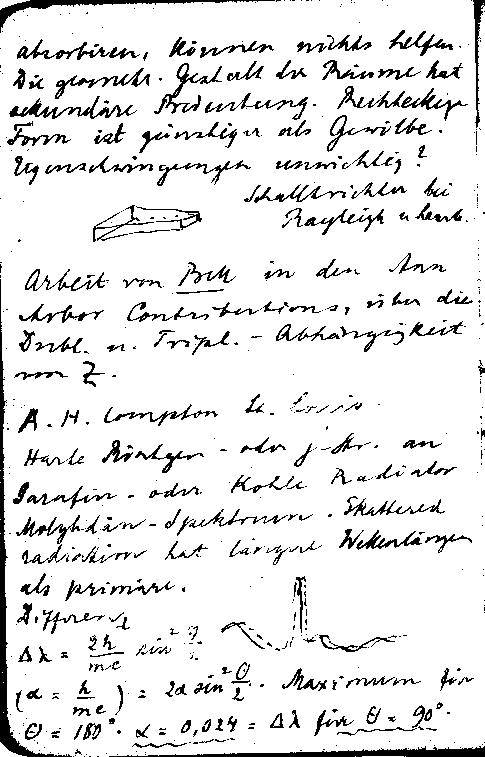 absorbiren, können nichts helfen.
Die geometr. Gestalt der Räume hat
sekundäre Bedeutung. Rechteckige
Form ist günstiger als Gewölbe.
Eigenschwingungen unwichtig?
Schalltrichter bei
Rayleigh u.
Arbeit von in den Ann
Arbor Contributions, über die
Dubl. u. Tripl. - Abhängigkeit
von Z.
A. H. Compton St. Louis
Harte Röntgen - oder γ-Str. an
Parafin - oder Kohle Radiator
Molybdän - Spektrum. Skattered
radiation hat längere Wellenlängen
als primäre.
Differenz
Δλ = 2h/mc sin² θ/2
(α = h/mc) = 2α sin² θ/2. Maximum für
θ = 180°. α = 0,024 = Δλ für θ = 90°.